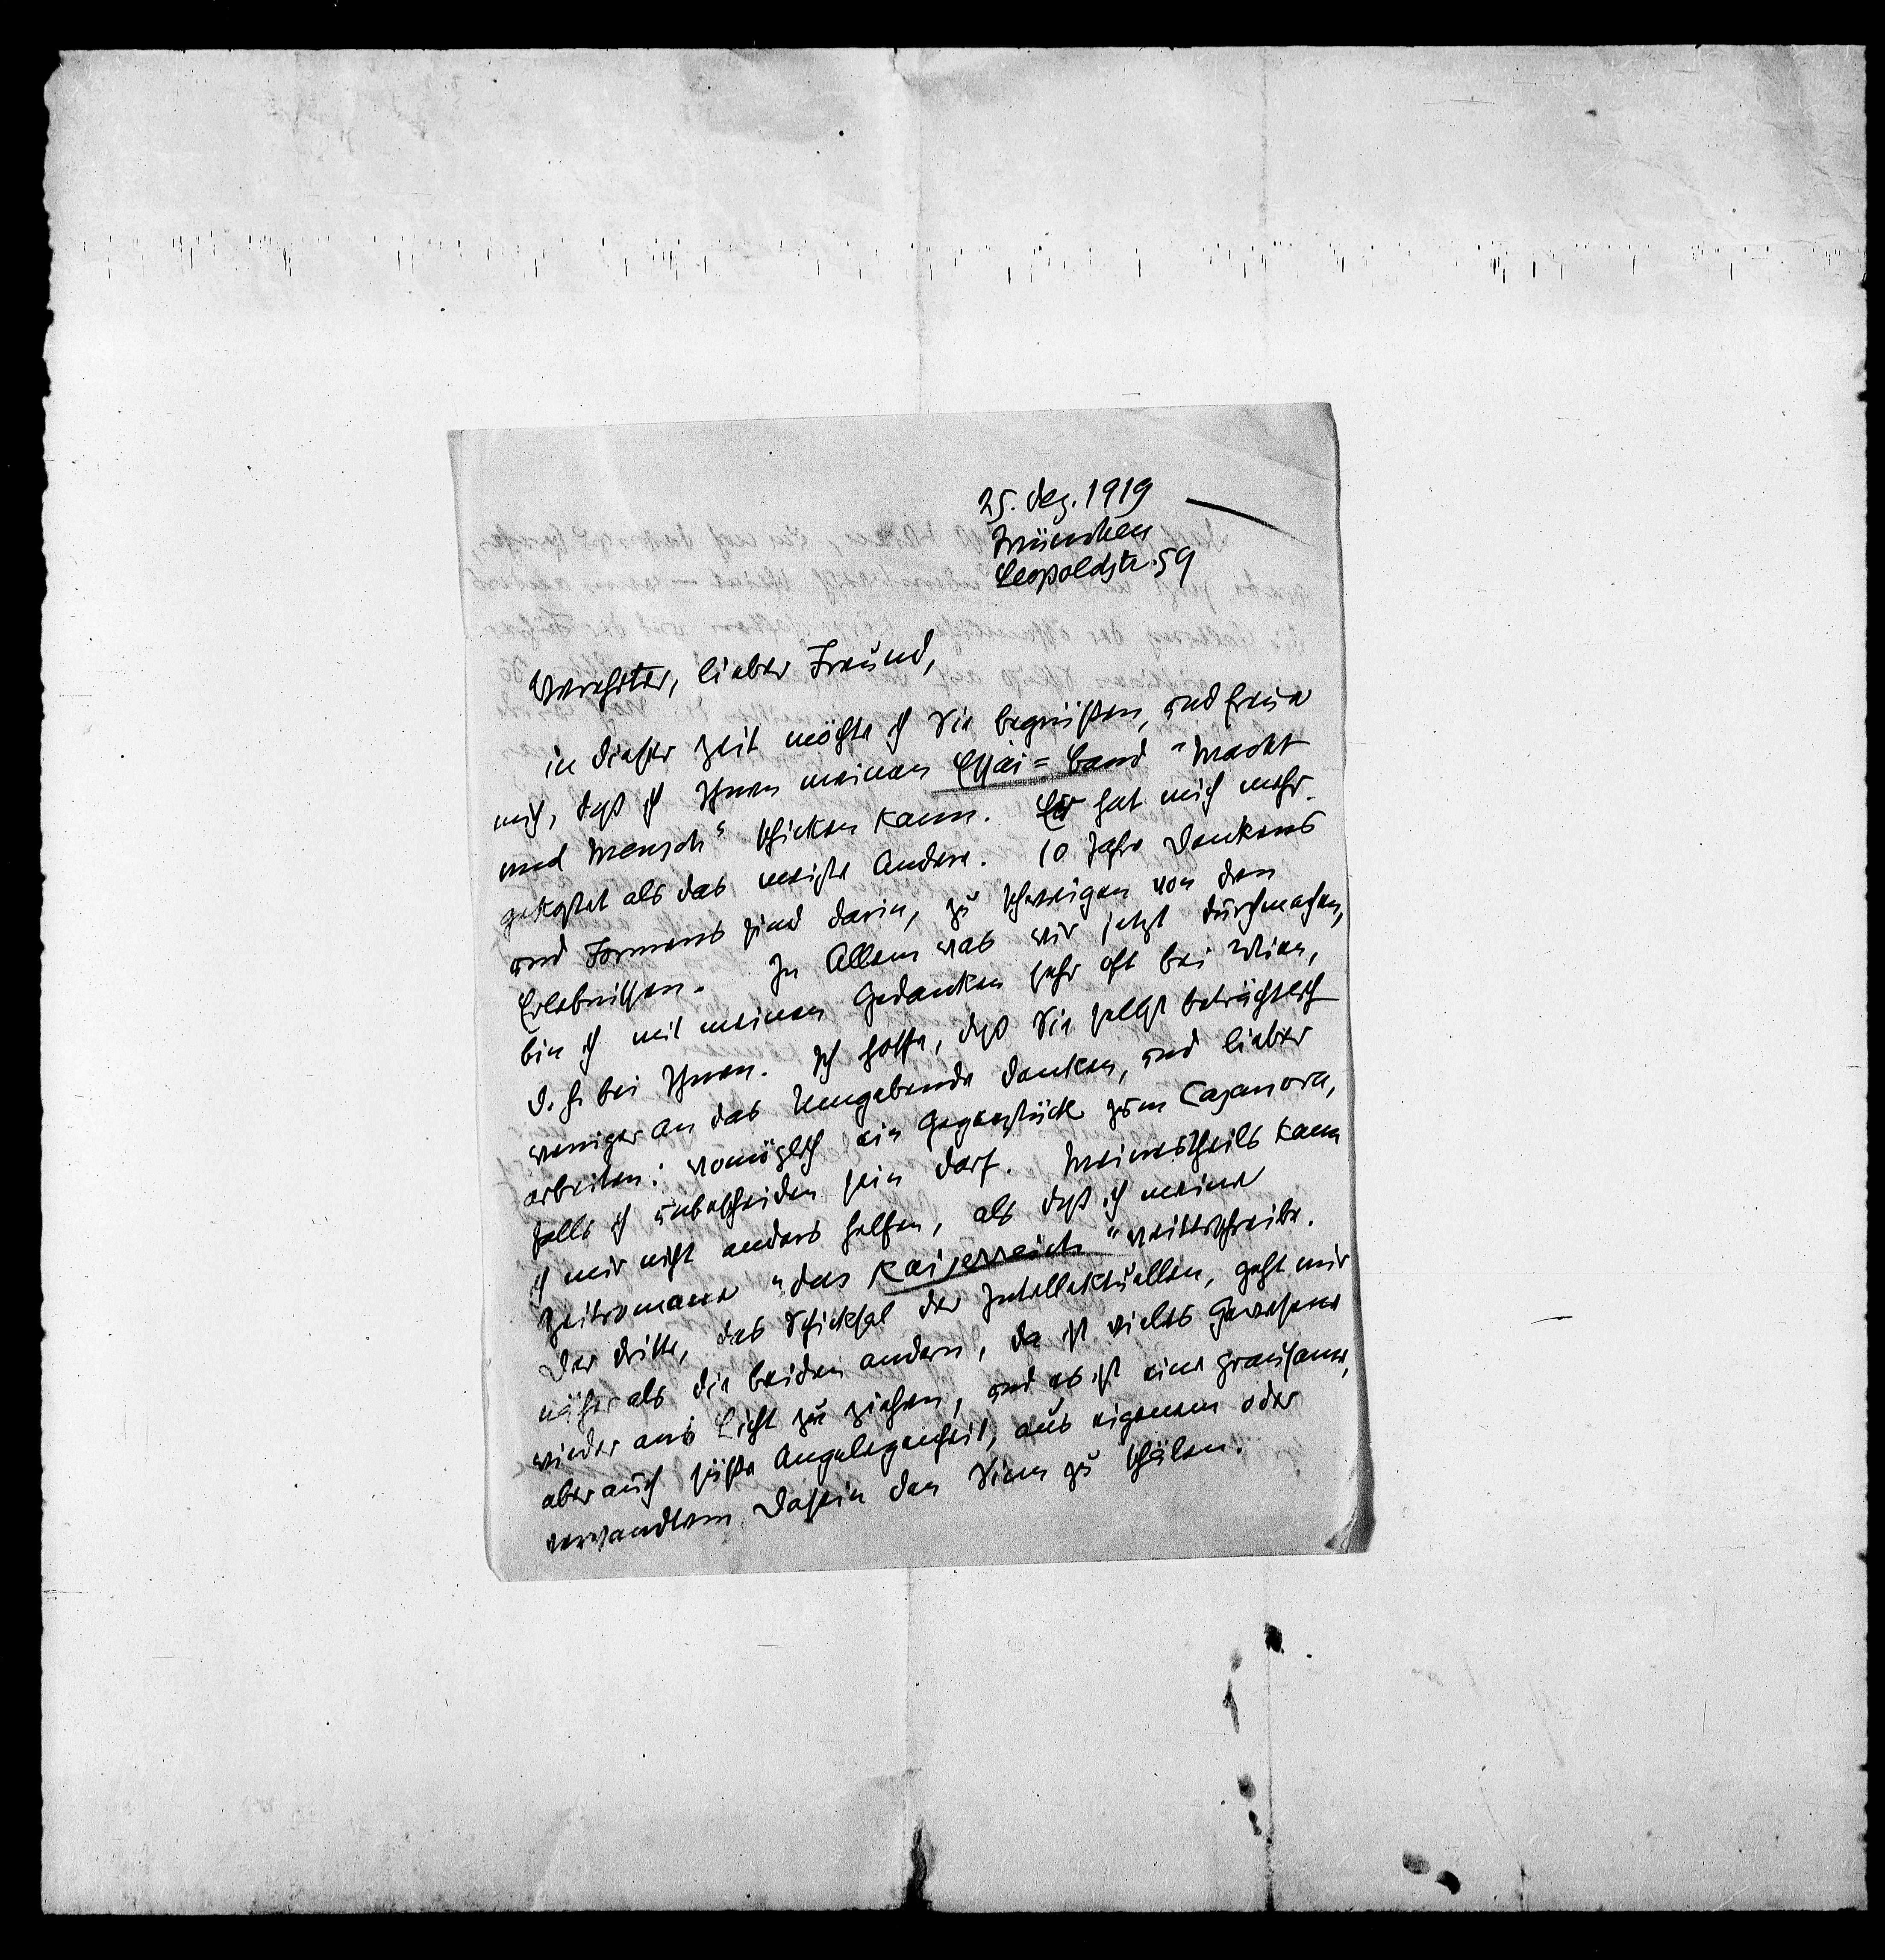 25. Dez. 1919
München
Leopoldstr. 59
Verehrter, lieber Freund,
in dieser Zeit möchte ich Sie begrüßen, und freue
mich, daß ich Ihnen meinen Essai=Band "Macht
und Mensch" schicken kann. Er hat mich mehr
gekostet als das meiste Andere. 10 Jahre Denkens
und Formens sind darin, zu schweigen von den
Erlebnissen. In Allem was wir jetzt durchmachen,
bin ich mit meinen Gedanken sehr oft bei Wien,
d. h. bei Ihnen. Ich hoffe, daß Sie selbst beträchtlich
weniger an das Umgebende denken, und lieber
arbeiten: womöglich ein Gegenstück zum Casanova,
falls ich unbescheiden sein darf. Meinestheils kann
ich mir nicht anders helfen, als daß ich meine
Zeitromane "das Kaiserreich" weiterschreibe.
Der dritte, das Schicksal der Intellektuellen, geht mir
näher als die beiden andern, da ist vieles Gewesene
wieder ans Licht zu ziehen, und es ist eine grausame,
aber auch süße Angelegenheit, aus eigenem oder
verwandtem Dasein den Sinn zu schälen.